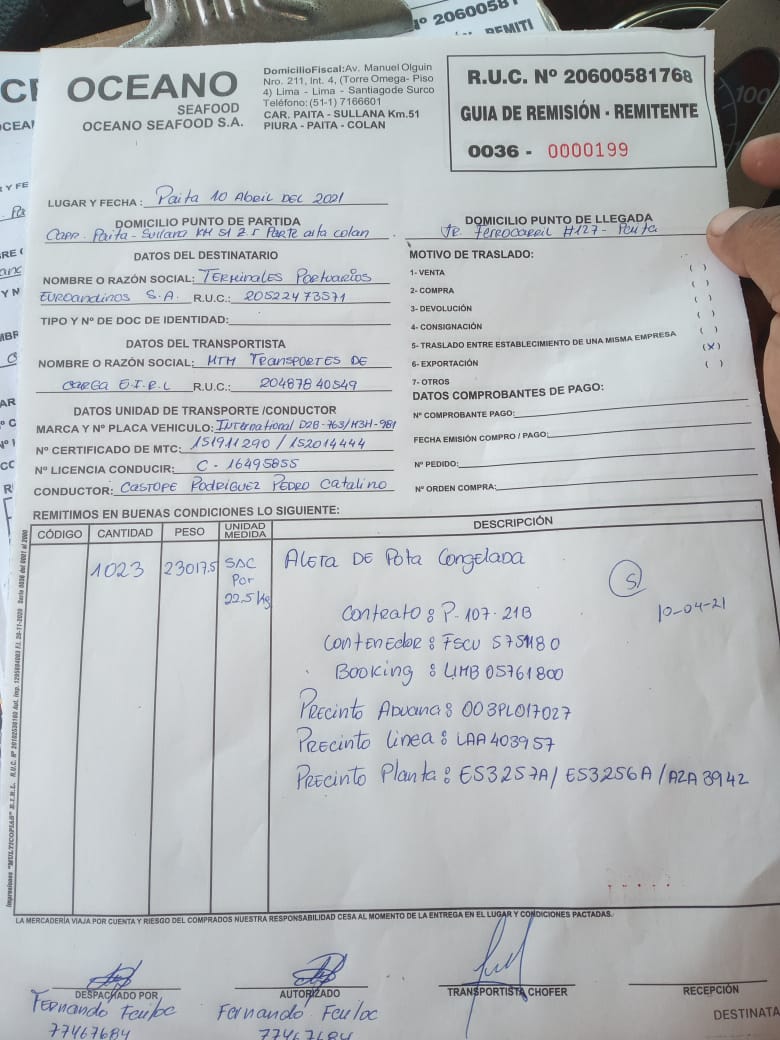 Nº 2060058
REMITI
OCEANO
SEAFOOD
OCEANO SEAFOOD S.A.
DomicilioFiscal:Av. Manuel Olguin
Nro. 211, Int. 4, (Torre Omega- Piso
4) Lima - Lima - Santiagode Surco
Teléfono:(51-1) 7166601
CAR. PAITA - SULLANA Km.51
PIURA - PAITA - COLAN
R.U.C. Nº 20600581768
GUIA DE REMISIÓN - REMITENTE
0036 - 0000199
LUGAR Y FECHA: Paita 10 Abril DEL 2021
DOMICILIO PUNTO DE PARTIDA
Carr. Paita-Sullana KM 51 Z.I Parte alta colan
DOMICILIO PUNTO DE LLEGADA
Jr. Ferrocarril #127- Paita
DATOS DEL DESTINATARIO
NOMBRE O RAZÓN SOCIAL: Terminales Portuarios
Euroandinos S.A. R.U.C.: 20522473571
TIPO Y Nº DE DOC DE IDENTIDAD:
DATOS DEL TRANSPORTISTA
NOMBRE O RAZÓN SOCIAL: MTM Transportes DE
Carga E.I.R.L R.U.C.: 20487840549
DATOS UNIDAD DE TRANSPORTE /CONDUCTOR
MARCA Y Nº PLACA VEHICULO: International D2B-763/M3H-981
Nº CERTIFICADO DE MTC: 151911290 / 152014444
Nº LICENCIA CONDUCIR: C - 16495855
CONDUCTOR: Castope Rodriguez Pedro Catalino
MOTIVO DE TRASLADO:
1- VENTA ( )
2- COMPRA ( )
3- DEVOLUCIÓN ( )
4- CONSIGNACIÓN ( )
5- TRASLADO ENTRE ESTABLECIMIENTO DE UNA MISMA EMPRESA ( )
6- EXPORTACIÓN (X)
7- OTROS ( )
DATOS COMPROBANTES DE PAGO:
Nº COMPROBANTE PAGO:
FECHA EMISIÓN COMPRO / PAGO:
Nº PEDIDO:
Nº ORDEN COMPRA:
REMITIMOS EN BUENAS CONDICIONES LO SIGUIENTE:
CÓDIGO CANTIDAD PESO UNIDAD MEDIDA DESCRIPCIÓN
1023 23017.5 SAC Por 22.5/kg ALETA DE Pota Congelada
S
10-04-21
Contrato : P-107-21B
Contenedor : FSCU
Booking : LIMB 05761800
Precinto Aduana : 003PL017027
Precinto Linea : LAA403957
Precinto Planta : ES3257A/ ES3256A /AZA 3942
LA MERCADERÍA VIAJA POR CUENTA Y RIESGO DEL COMPRADOS NUESTRA RESPONSABILIDAD CESA AL MOMENTO DE LA ENTREGA EN EL LUGAR Y CONDICIONES PACTADAS.
DESPACHADO POR
Fernando
77467684
AUTORIZADO
Fernando
77467684
TRANSPORTISTA CHOFER
RECEPCIÓN
DESTINATA